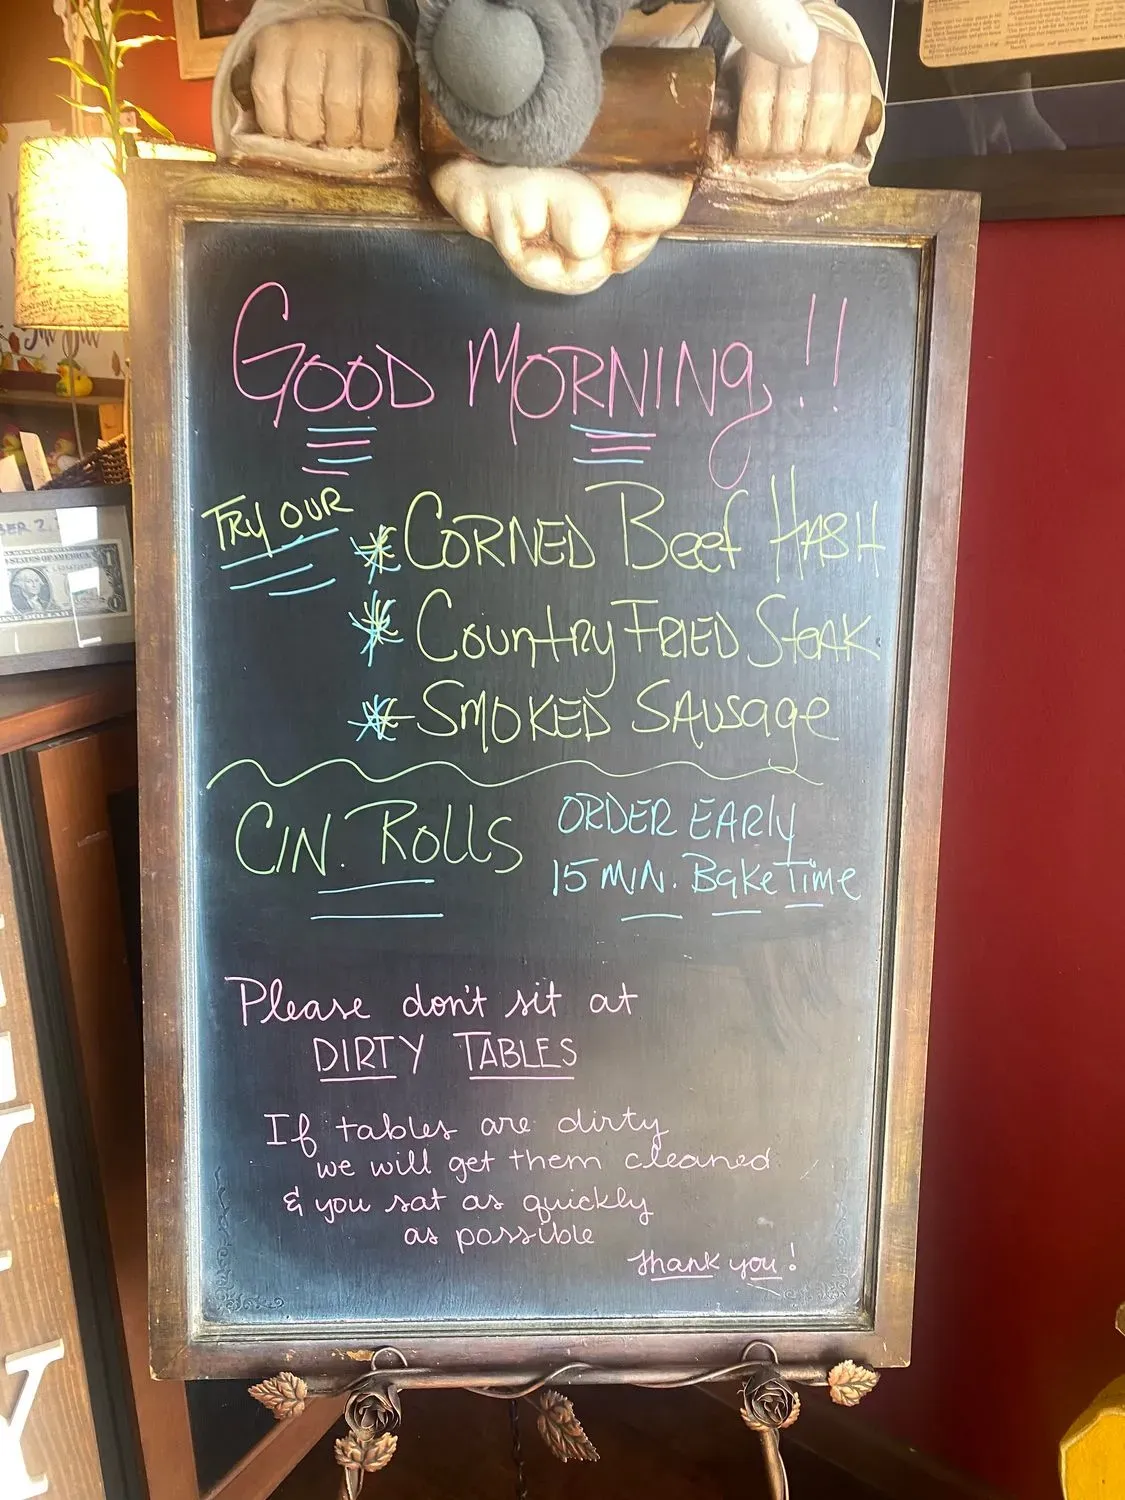 GOOD MORNINg!!
TRY OUR
CORNED Beef HASH
Country FRIED Steak
SMOKED SAusage
CIN. Rolls
ORDER EARly
15 MIN. Bake Time
Please don't sit at
DIRTY TABLES
If tables are dirty
we will get them cleaned
& you sat as quickly
as possible
Thank you!